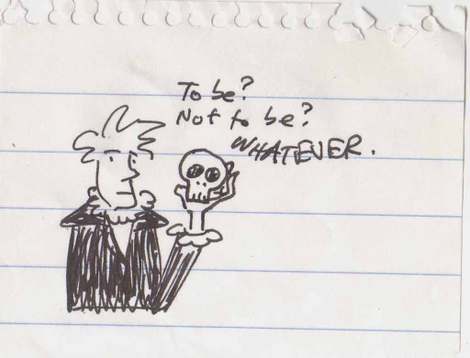 To be?
Not to be?
WHATEVER.